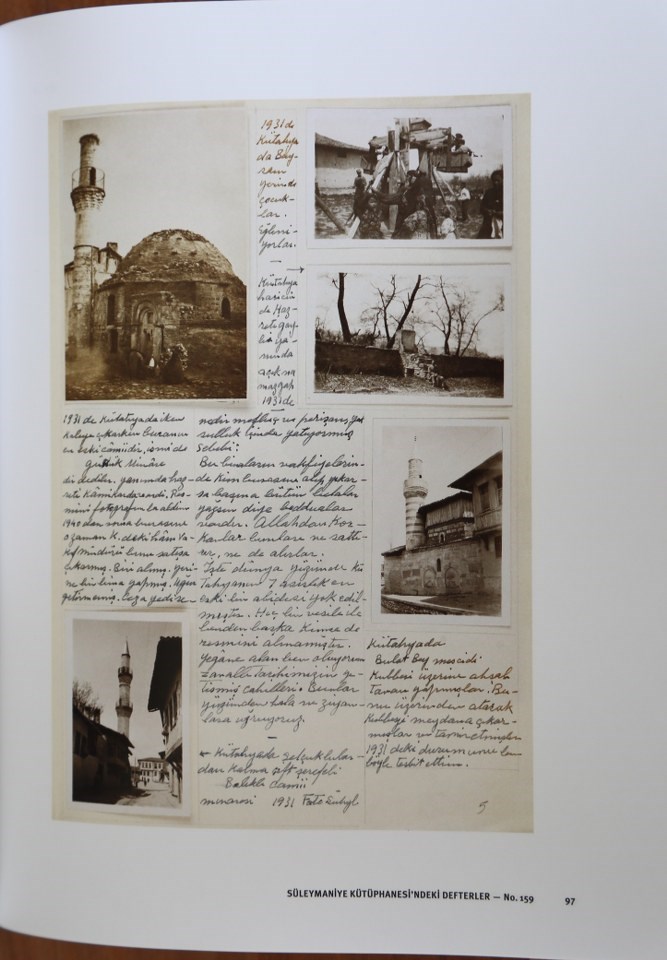 1931 de
Kütahya
da Bay-
ram
yerinde
çocuk-
lar.
Eğleni-
yorlar.
Kütahya
haricin
de Haz-
reti
nında
açık na
mazgah
1931 de
1931 de Kütahyada iken
Kaleye çıkarken buranın
en eski camiidir, ismi de
güdük Minâre
di dediler. yanında haz-
reti vardı. Res-
mini fotografla aldım
1940 dan sonra burasını
o zaman K. deki hâin Va-
kıf müdürü bunu satışa
çıkarmış. Biri almış. yeri-
ne bir bina yapmış. Uğur
getirmemiş. Ceza yedi se-
nedir meflûç ve perişan yok
sulluk içinde yatıyormuş
Sebebi:
Bu binaların vakfiyelerin-
de Kim burasını alıp yıkar-
sa başına bütün belalar
yağsın diye beddualar
vardır. Allahdan Kor-
kanlar bunları ne sattı-
rır, ne de alırlar.
İşte dünya yüzünde Kü
tahyanın 7 asırlık en
eski bir abidesi yok edil-
miştir. Hiç bir vesile ile
benden başka Kimse de
resmini almamıştır.
yegâne alan ben oluyorum
zavallı tarihimizin ye-
tişmiş cahilleri. Bunlar
yüzünden hâla ne ziyan-
lara uğruyoruz.
Kütahyada Selçuklular-
dan Kalma çift şerefeli
Balıklı camii
minaresi 1931 Foto Süheyl
Kütahyada
Bulat Bey mescidi
Kubbesi üzerine ahşab
Tavan yapmışlar. Bu-
nu üzerinden atarak
Kubbeyi meydana çıkar-
mışlar ve tamir etmişler
1931 deki durumunu ben
böyle tesbit ettim.
5
SÜLEYMANİYE KÜTÜPHANESİ'NDEKİ DEFTERLER — No. 159 97